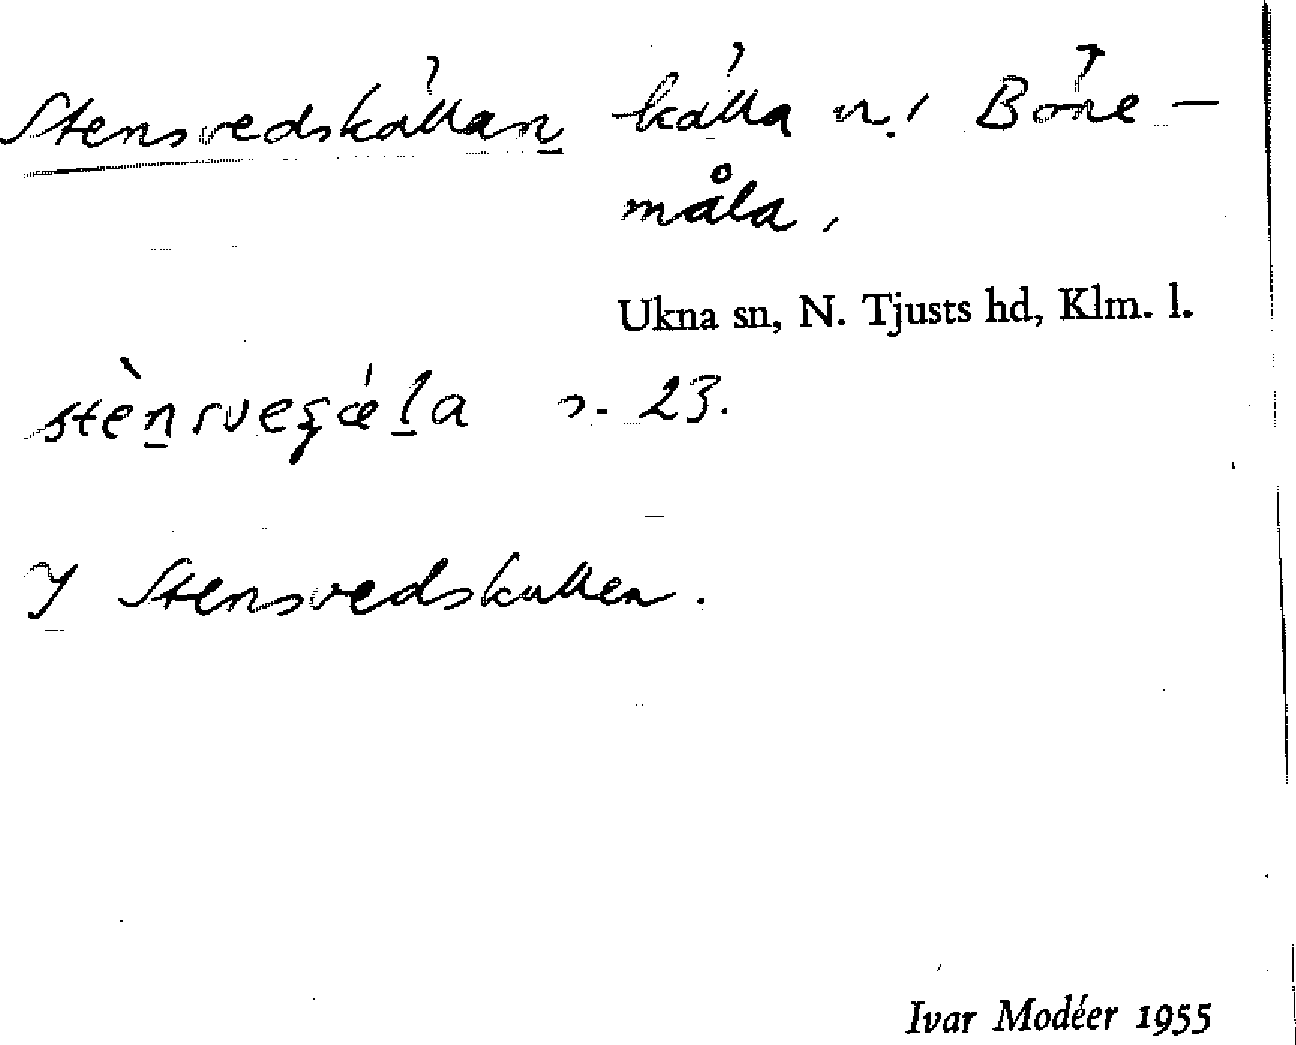 Stensvedskällan källa n.! Böne-
måla,
Ukna sn, N. Tjusts hd, Klm. l.
s. 23.
I Stensvedskullen.
Ivar Modéer 1955